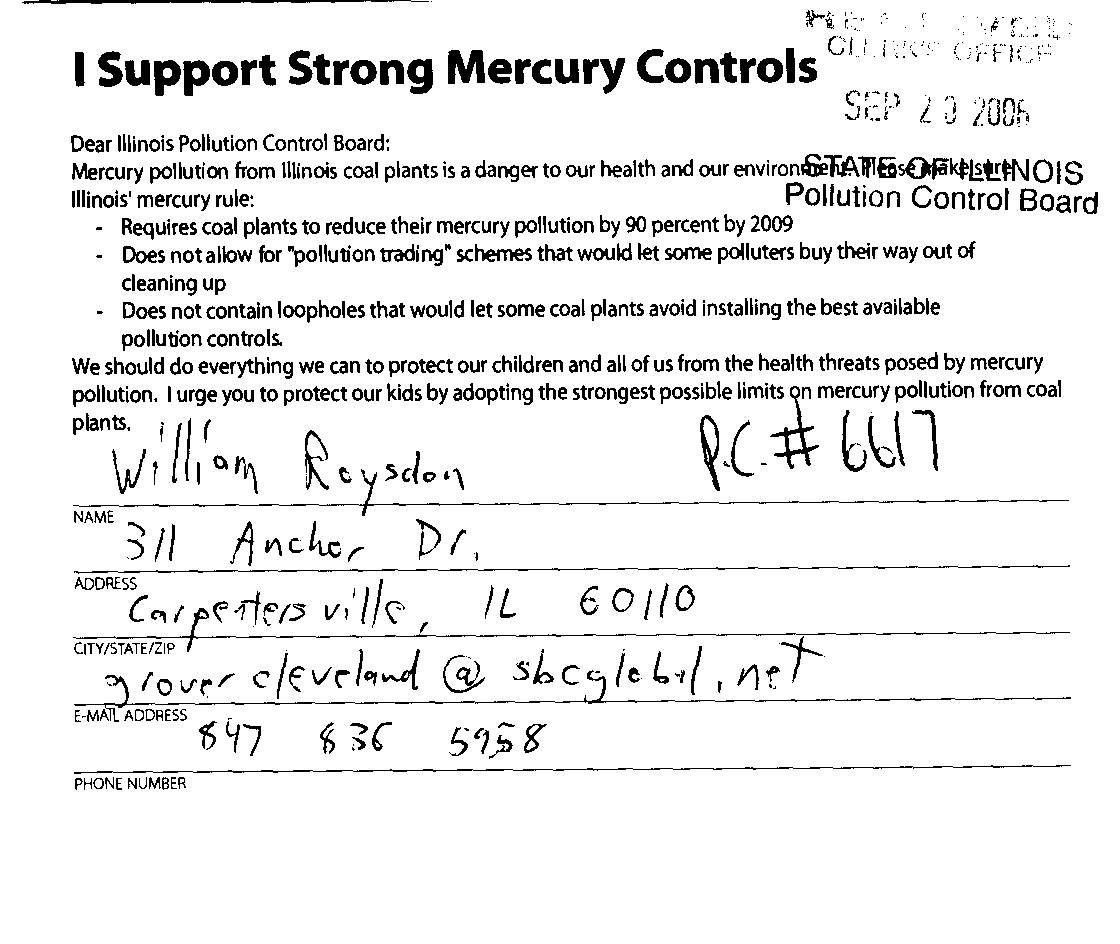 RECEIVED
CLERK'S OFFICE
SEP 20 2006
STATE OF ILLINOIS
Pollution Control Board
I Support Strong Mercury Controls
Dear Illinois Pollution Control Board:
Mercury pollution from Illinois coal plants is a danger to our health and our environment. Please make sure
Illinois' mercury rule:
- Requires coal plants to reduce their mercury pollution by 90 percent by 2009
- Does not allow for "pollution trading" schemes that would let some polluters buy their way out of
cleaning up
- Does not contain loopholes that would let some coal plants avoid installing the best available
pollution controls.
We should do everything we can to protect our children and all of us from the health threats posed by mercury
pollution. I urge you to protect our kids by adopting the strongest possible limits on mercury pollution from coal
plants.
P.C. # 6617
William Roysdon
NAME
311 Anchor Dr.
ADDRESS
Carpentersville, IL 60110
CITY/STATE/ZIP
grover cleveland @ sbcglobal.net
E-MAIL ADDRESS
847 836 5958
PHONE NUMBER